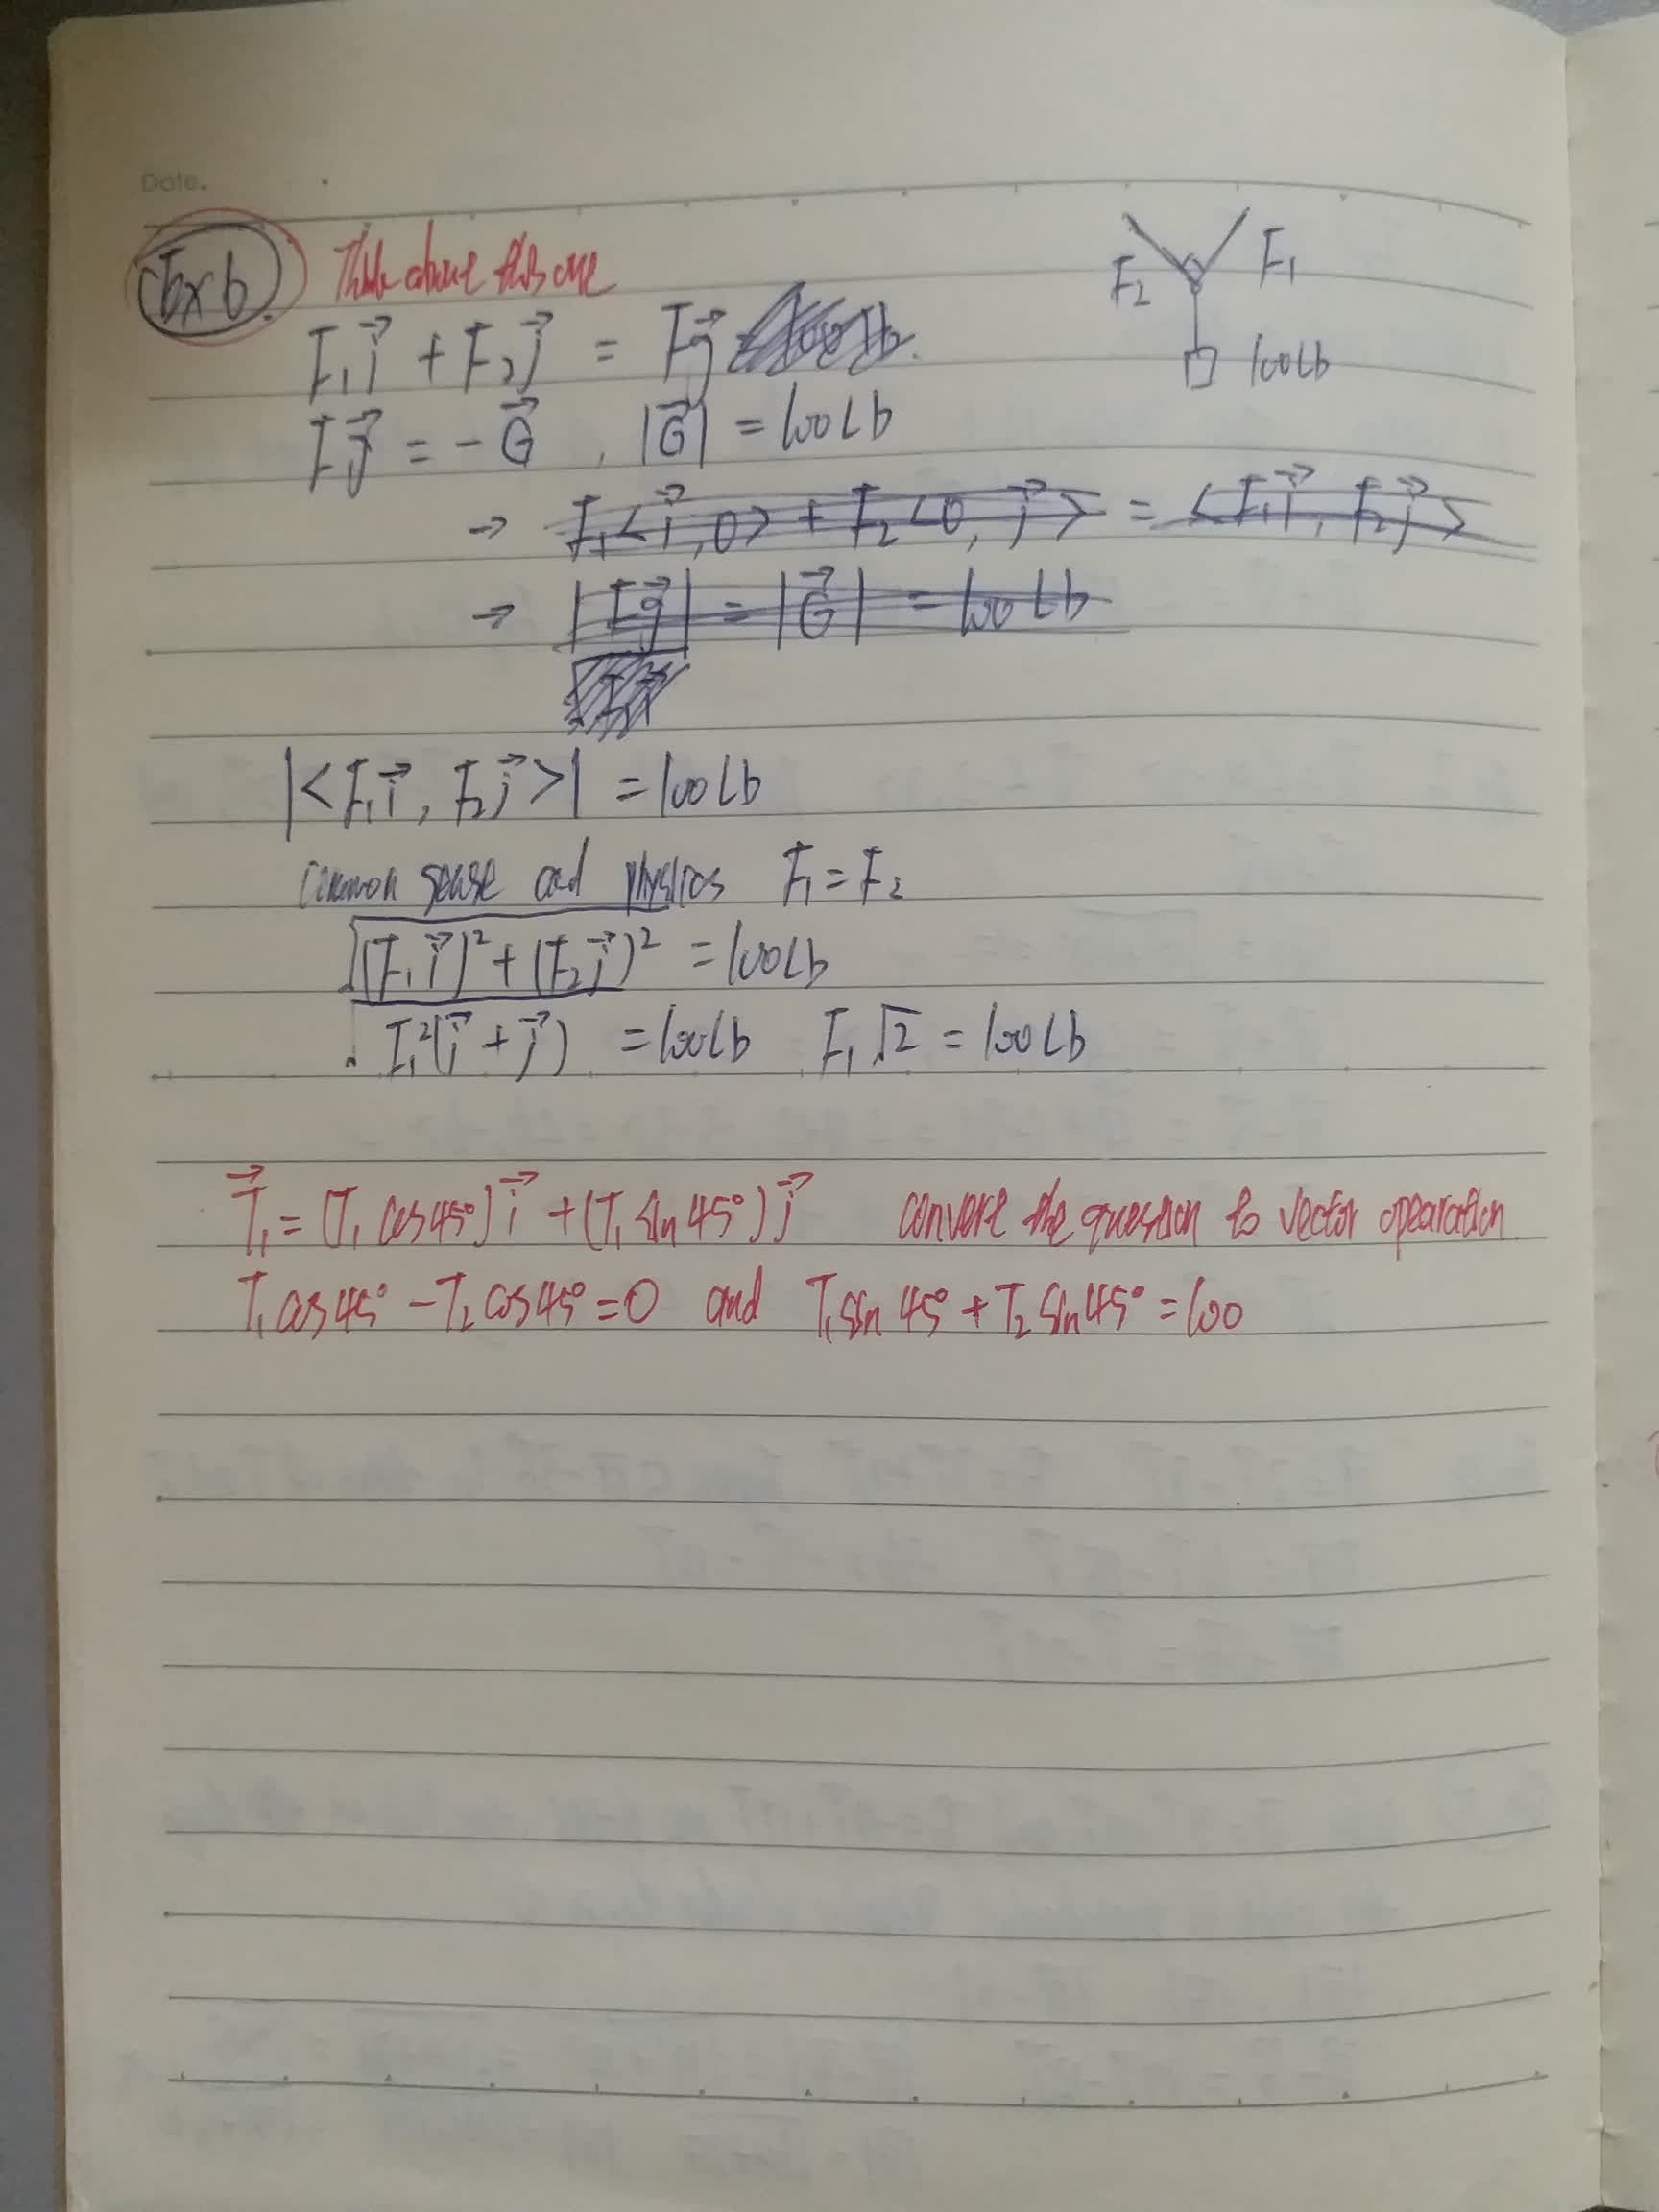 Date.
Ex 6 Think about this one
F₁i⃗ + F₂j⃗ = Fg⃗
F₂ F₁
100Lb
Fg⃗ = -G⃗ , |G⃗| = 100Lb
→ F₁<i⃗, 0> + F₂<0, j⃗> = <F₁i⃗, F₂j⃗>
→ |Fg⃗| = |G⃗| = 100Lb
|<F₁i⃗, F₂j⃗>| = 100Lb
Common sense and physics F₁ = F₂
√(F₁i⃗)² + (F₂j⃗)² = 100Lb
√F₁²(i⃗ + j⃗) = 100Lb F₁√2 = 100Lb
T⃗₁ = (T₁ cos45°)i⃗ + (T₁ sin45°)j⃗ convert the question to vector opearation
T₁ cos45° - T₂ cos45° = 0 and T₁ sin45° + T₂ sin45° = 100